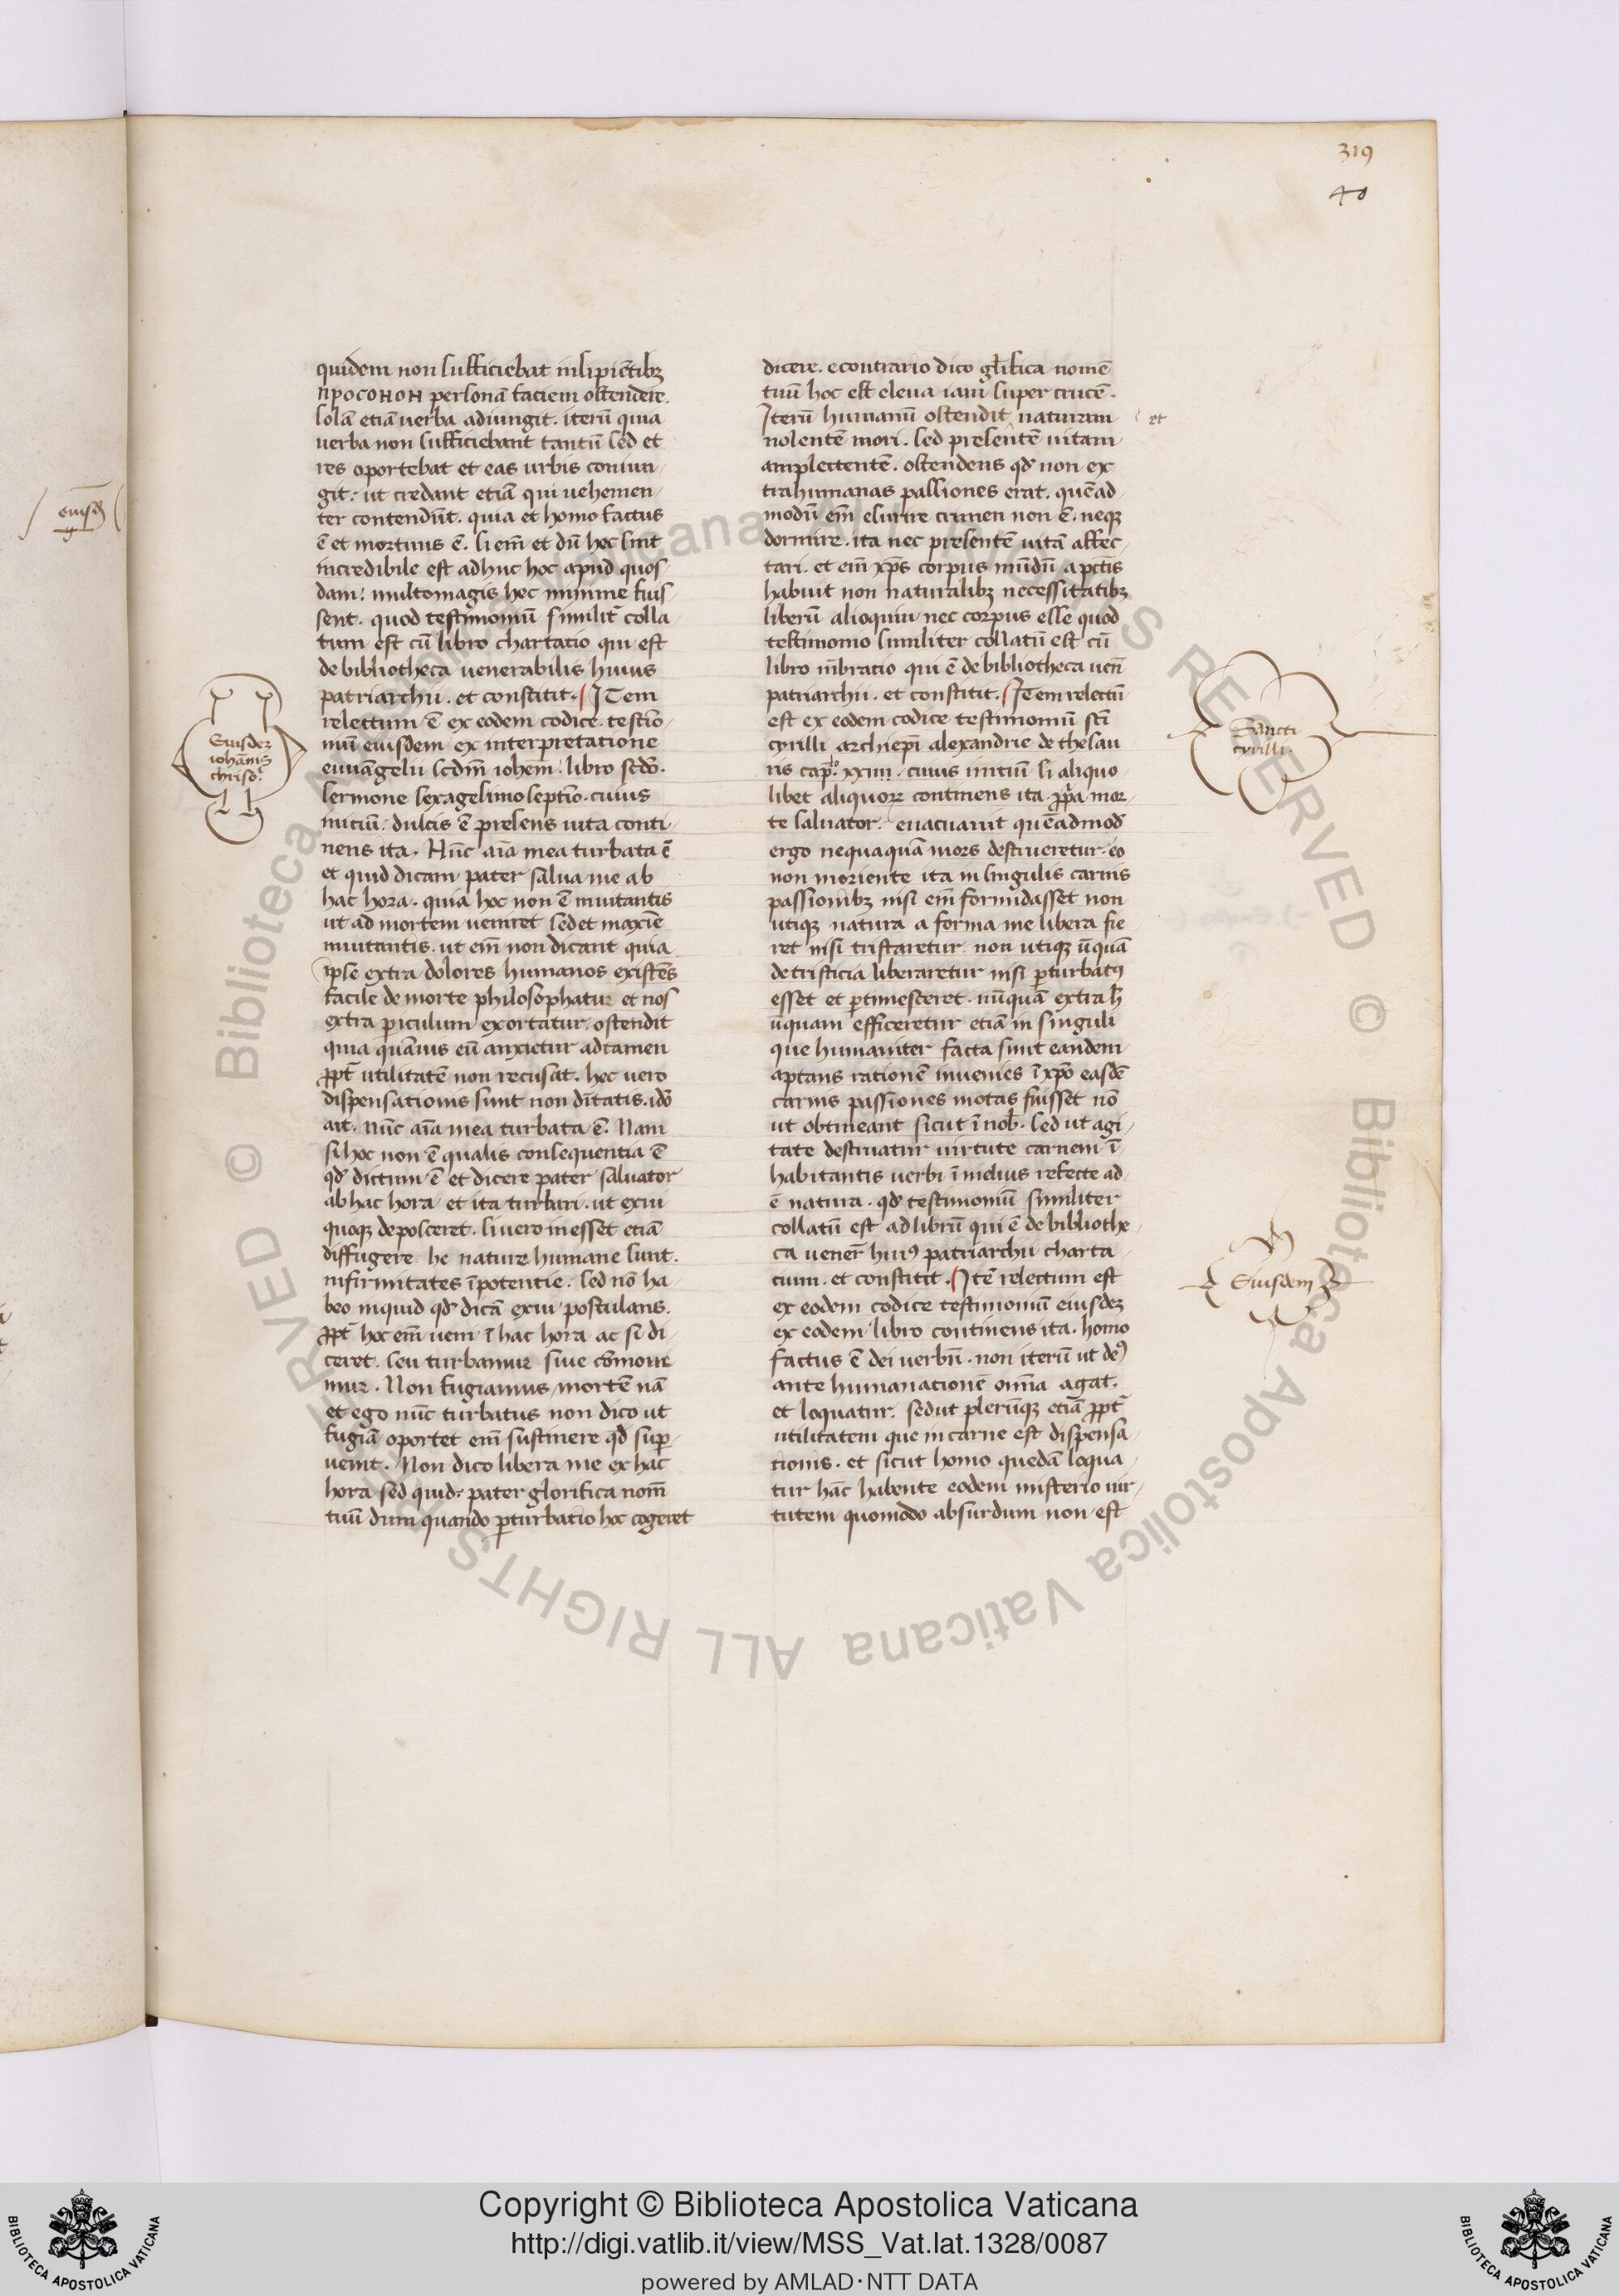 319
40
quidem non sufficiebat insipiētibꝫ
ΠΡΟϹΟΠΟΝ personā faciem ostendere.
solā etiā uerba adiungit. iterū quia
uerba non sufficiebant tantū sed et
res oportebat et eas urbis coniun
git. ut credant etiā qui uehemen
ter contendūt. quia et homo factus
ē et mortuus ē. si em̄ et dū hec sint
incredibile est adhuc hoc apud quos
dam: multomagis hec minime fuis
sent. quod testimoniū similit̄ colla
tum est cū libro chartacio qui est
de bibliotheca uenerabilis huius
patriarchii. et constitit. ITem
relectum ē ex eodem codice testio
niū eiusdem ex interpretacione
euuāgelii scdm̄ iohem̄. libro scdō.
sermone sexagesimo septio. cuius
initiū: dulcis ē presens uita conti
nens ita. Nūc aīa mea turbata ē
et quid dicam pater salua me ab
hac hora. quia hoc non ē inuitantis
ut ad mortem ueniret sed et maxīe
inuitantis. ut em̄ non dicant quia
ipse extra dolores humanos existēs
facile de morte philosophatur et nos
extra piculum exortatur. ostendit
quia quāuis eū anxietur adtamen
ꝓpt̄ utilitatē non recusat. hec uero
dispensationis sunt non dītatis. idō
ait. Nūc aīa mea turbata ē. Nam
si hoc non ē qualis consequentia ē
qd̄ dictum ē et dicere pater saluator
ab hac hora et ita turbari. ut exiu
quoqꝫ deposceret. si uero inesset etiā
diffugere he nature humane sunt.
infirmitates īpotentie. sed nō ha
beo inquid qd̄ dicā exiu postulans.
ꝓpt̄ hoc em̄ ueni ī hac hora ac si di
ceret. seu turbamur siue cōmoue
mur. Non fugiamus mortē nā
et ego nūc turbatus non dico ut
fugiā oportet em̄ sustinere qd̄ sup
uenit. Non dico libera me ex hac
hora sed quid: pater glorifica nom̄
tuū dum quando pturbatio hoc cogeret
dicere. econtrario dico gl̄ifica nomē
tuū hoc est eleua iam super crucē.
Iterū humanū ostendit naturam
nolentē mori. sed presentē uitam
amplectentē. ostendens qd̄ non ex
trahumanas passiones erat. quēad
modū em̄ esurire crimen non ē. neqꝫ
dormire. ita nec presentē uitā affec
tari. et em̄ xp̄s corpus mūdū a pctīs
habuit non naturalibꝫ necessitatibꝫ
liberū alioquin nec corpus esse quod
testimonio similiter collatū est cū
libro mbracio qui ē de bibliotheca uen̄
patriarchii. et constitit. ITem relectū
est ex eodem codice testimoniū scī
cyrilli archiepī alexandrie de thesau
ris cap.º xxiiii. cuius initiū si aliquo
libet aliquorꝝ continens ita. ꝓpa mor
te saluator. euacuauit quēadmod
ergo nequaquā mors destrueretur. eo
non moriente ita in singulis carnis
passionibꝫ nisi em̄ formidasset non
utiqꝫ natura a forma me libera fie
ret nisi tristaretur. non utiqꝫ ūquā
de tristicia liberaretur nisi pturbatꝰ
esset et ptimesceret. nūquā extra h̄
ūquam efficeretur etiā in singuli
que humaniter facta sunt eandem
aptans rationē inuenies ī xpō easdē
carnis passiones motas fuisset nō
ut obtineant sicut ī nob. sed ut agi
tate destruatur uirtute carnem ī
habitantis uerbi ī melius refecte ad
ē natura. qd̄ testimoniū similiter
collatū est ad librū qui ē de bibliothe
ca uener̄ huiꝰ patriarchii charta
cium. et constitit. Itē relectum est
ex eodem codice testimoniū eiusdeꝫ
ex eodem libro continens ita. homo
factus ē dei uerbū. non iterū ut deꝰ
ante humanacionē om̄ia agat.
et loquatur. sed ut plerūqꝫ etiā ꝓpt̄
utilitatem que in carne est dispensa
tionis. et sicut homo quedā loqua
tur hāc habente eodem misterio uir
tutem quomodo absurdum non est
eiusd̄
Eiusdeꝫ
iohānis
chrisō.
et
Sancti
cyrilli.
Eiusdem
© Biblioteca Apostolica Vaticana ALL RIGHTS RESERVED
© Biblioteca Apostolica Vaticana ALL RIGHTS RESERVED
Copyright © Biblioteca Apostolica Vaticana
http://digi.vatlib.it/view/MSS_Vat.lat.1328/0087
powered by AMLAD·NTT DATA
BIBLIOTECA APOSTOLICA VATICANA
BIBLIOTECA APOSTOLICA VATICANA